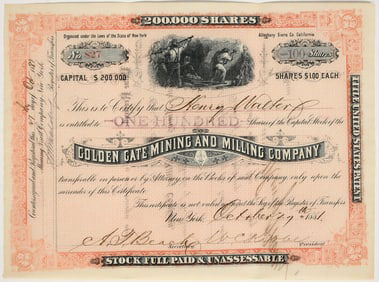 200.000 SHARES
Organized under the Laws of the State of New York
Alleghany Sierra Co. California
No. 827
100 Shares
CAPITAL $ 200.000
SHARES $100 EACH
This is to Certify that Henry
is entitled to ONE HUNDRED Shares of the Capital Stock of the
GOLDEN GATE MINING AND MILLING COMPANY
transferable in person or by Attorney on the Books of said Company only upon the
surrender of this Certificate.
This certificate is not valid until signed by the Register of Transfers
New York. October 29th 1881.
Secretary
President
STOCK FULL PAID & UNASSESSABLE
TITLE UNITED STATES PATENT